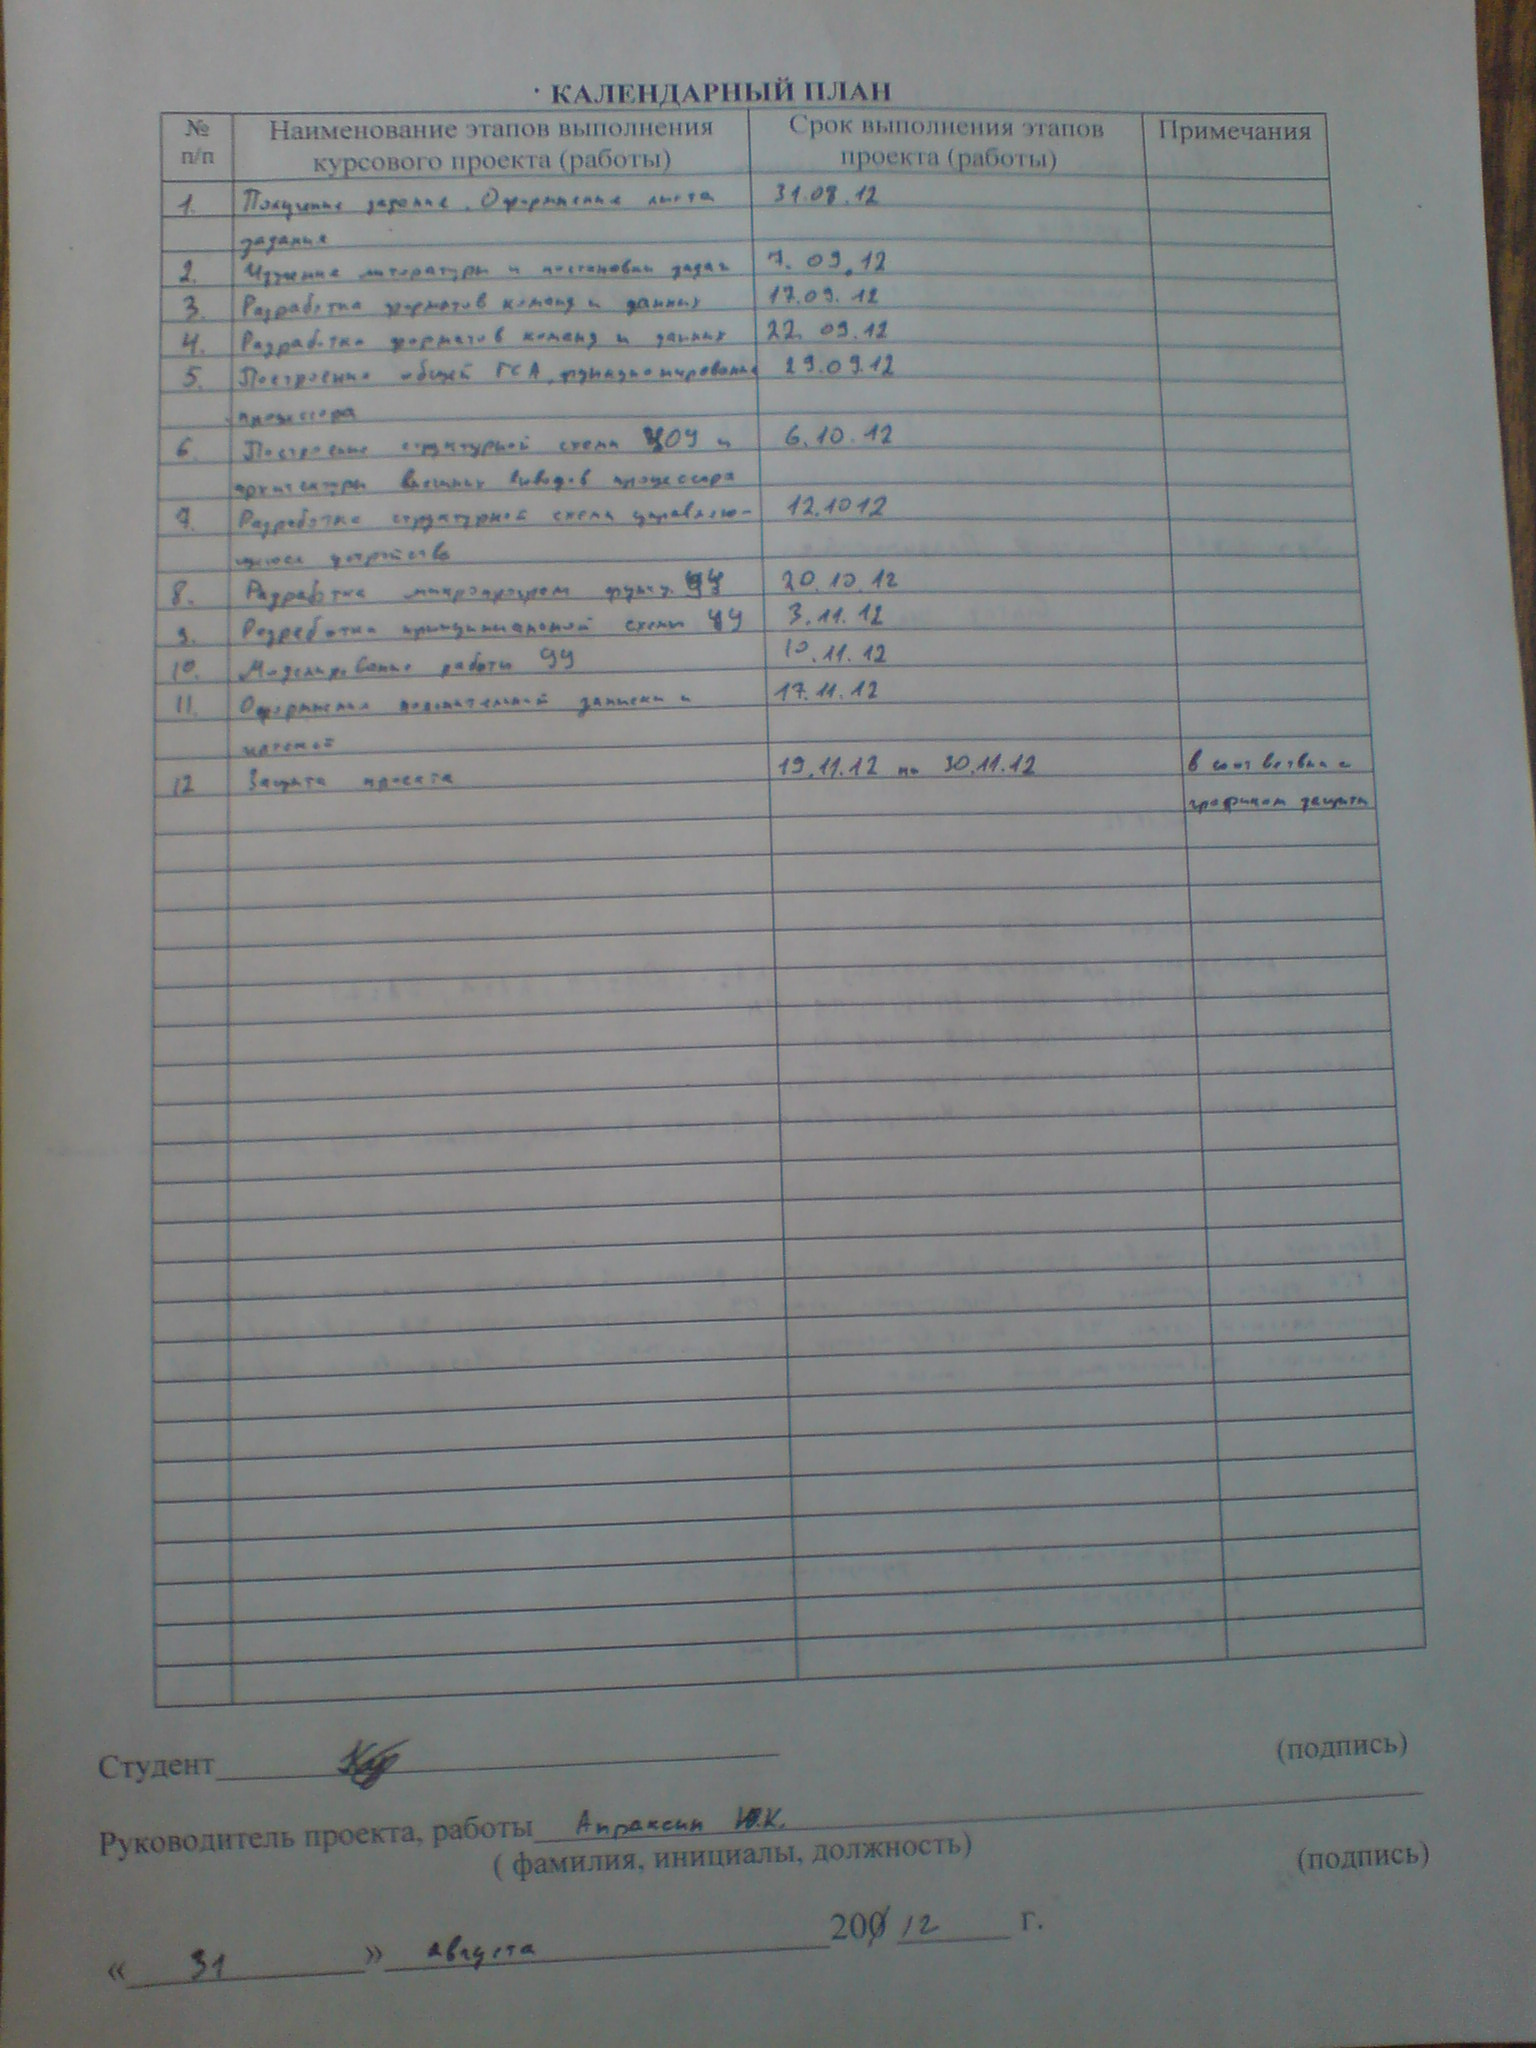 КАЛЕНДАРНЫЙ ПЛАН
№ п/п Наименование этапов выполнения курсового проекта (работы) Срок выполнения этапов проекта (работы) Примечания
1. Получение задание. Оформление листа 31.08.12
задания
2. Изучение литературы и постановки задач 7.09.12
3. Разработка форматов команд и данных 17.09.12
4. Разработка форматов команд и данных 22.09.12
5. Построение общей ГСА функционирования 29.09.12
процессора
6. Построение структурной схемы ЦОУ и 6.10.12
архитектуры внешних выводов процессора
7. Разработка структурной схемы управляю- 12.10 12
устройства
8. Разработка микропрограм функц. УУ 20.10.12
9. Разработка принципиальной схемы УУ 3.11.12
10. Моделирование работы УУ 10.11.12
11. Оформление пояснительной записки и 17.11.12
12 Защита проекта 19.11.12 по 30.11.12 в соответвии с
графиком защиты
Студент (подпись)
Руководитель проекта, работы Апраксин Ю.К.
( фамилия, инициалы, должность) (подпись)
« 31 » августа 200 12 г.